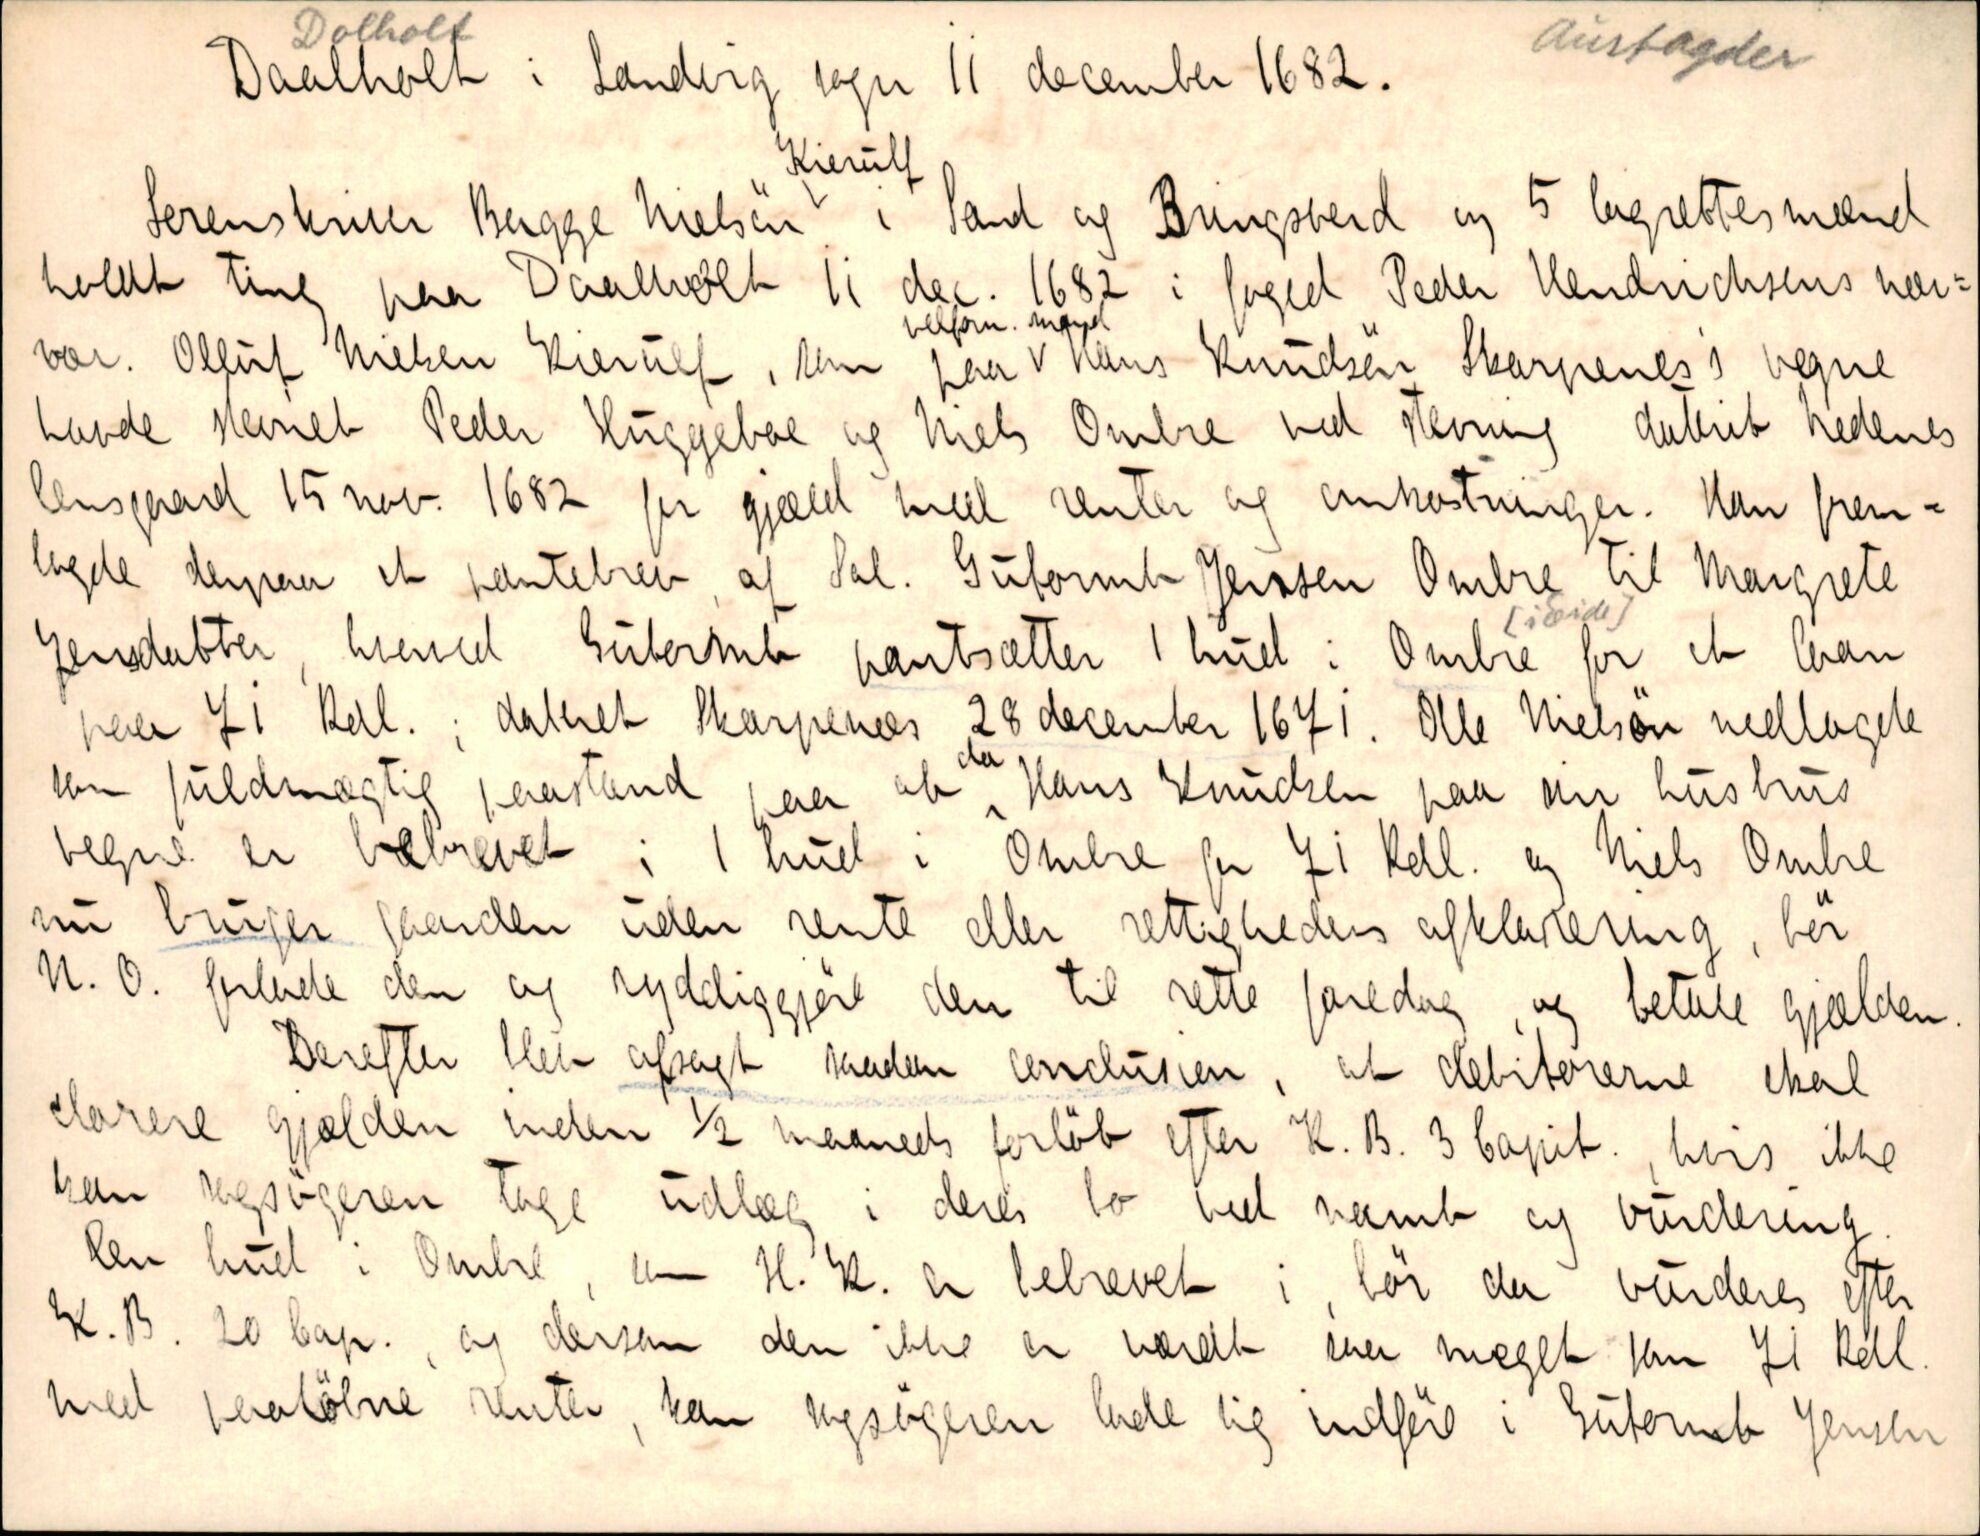 Dolholt
Austagder
Daalholt i Landvig sogn 11 december 1682.
Kierulf
Sorenskriver Bugge Nielsön i Sand og Bringsverd og 5 lagrettesmænd
holdt ting paa Daalholt 11 dec. 1682 i foged Peder Hendrichsens nær=
velforn. mand
vær. Olluf Nielsen Kierulf, som paa Hans Knudsön Skarpenes's vegne
havde stevnet Peder Huggeboe og Niels Ombre ved stevning datert Nedenes
lensgaard 15 nov. 1682 for gjæld med renter og omkostninger. Han frem=
lagde derpaa et pantebrev af Sal. Gutormb Jenssen Ombre til Margrete
[i Eide]
Jensdatter, hvorved Gutormb pantsætter 1 hud i Ombre for et laan
paa 71 Rdl.; dateret Skarpenæs 28 december 1671. Olle Nielsön nedlagde
da
som fuldmægtig paastand paa at Hans Knudsen paa sin hustrus
vegne er bebrevet i 1 hud i Ombre for 71 Rdl. og Niels Ombre
nu bruger gaarden uden rente eller rettigheders afklarering, bör
N. O. forlade den og ryddiggjöre den til rette faredag, og betale gjælden.
Derefter blev afsagt saadan conclusion, at debitorerne skal
clarere gjælden inden 1/2 maaneds forlöb efter K. B. 3 Capit., hvis ikke
kan sagsögeren tage udlæg i deres bo ved namb og vurdering.
Den hud i Ombre, som H. K. er bebrevet i, bör da vurderes efter
K. B. 20 Cap., og dersom den ikke er værdt saa meget som 71 Rdl.
med paalöbne renter, kan sagsögeren lade sig indföre i Gutormb Jensen